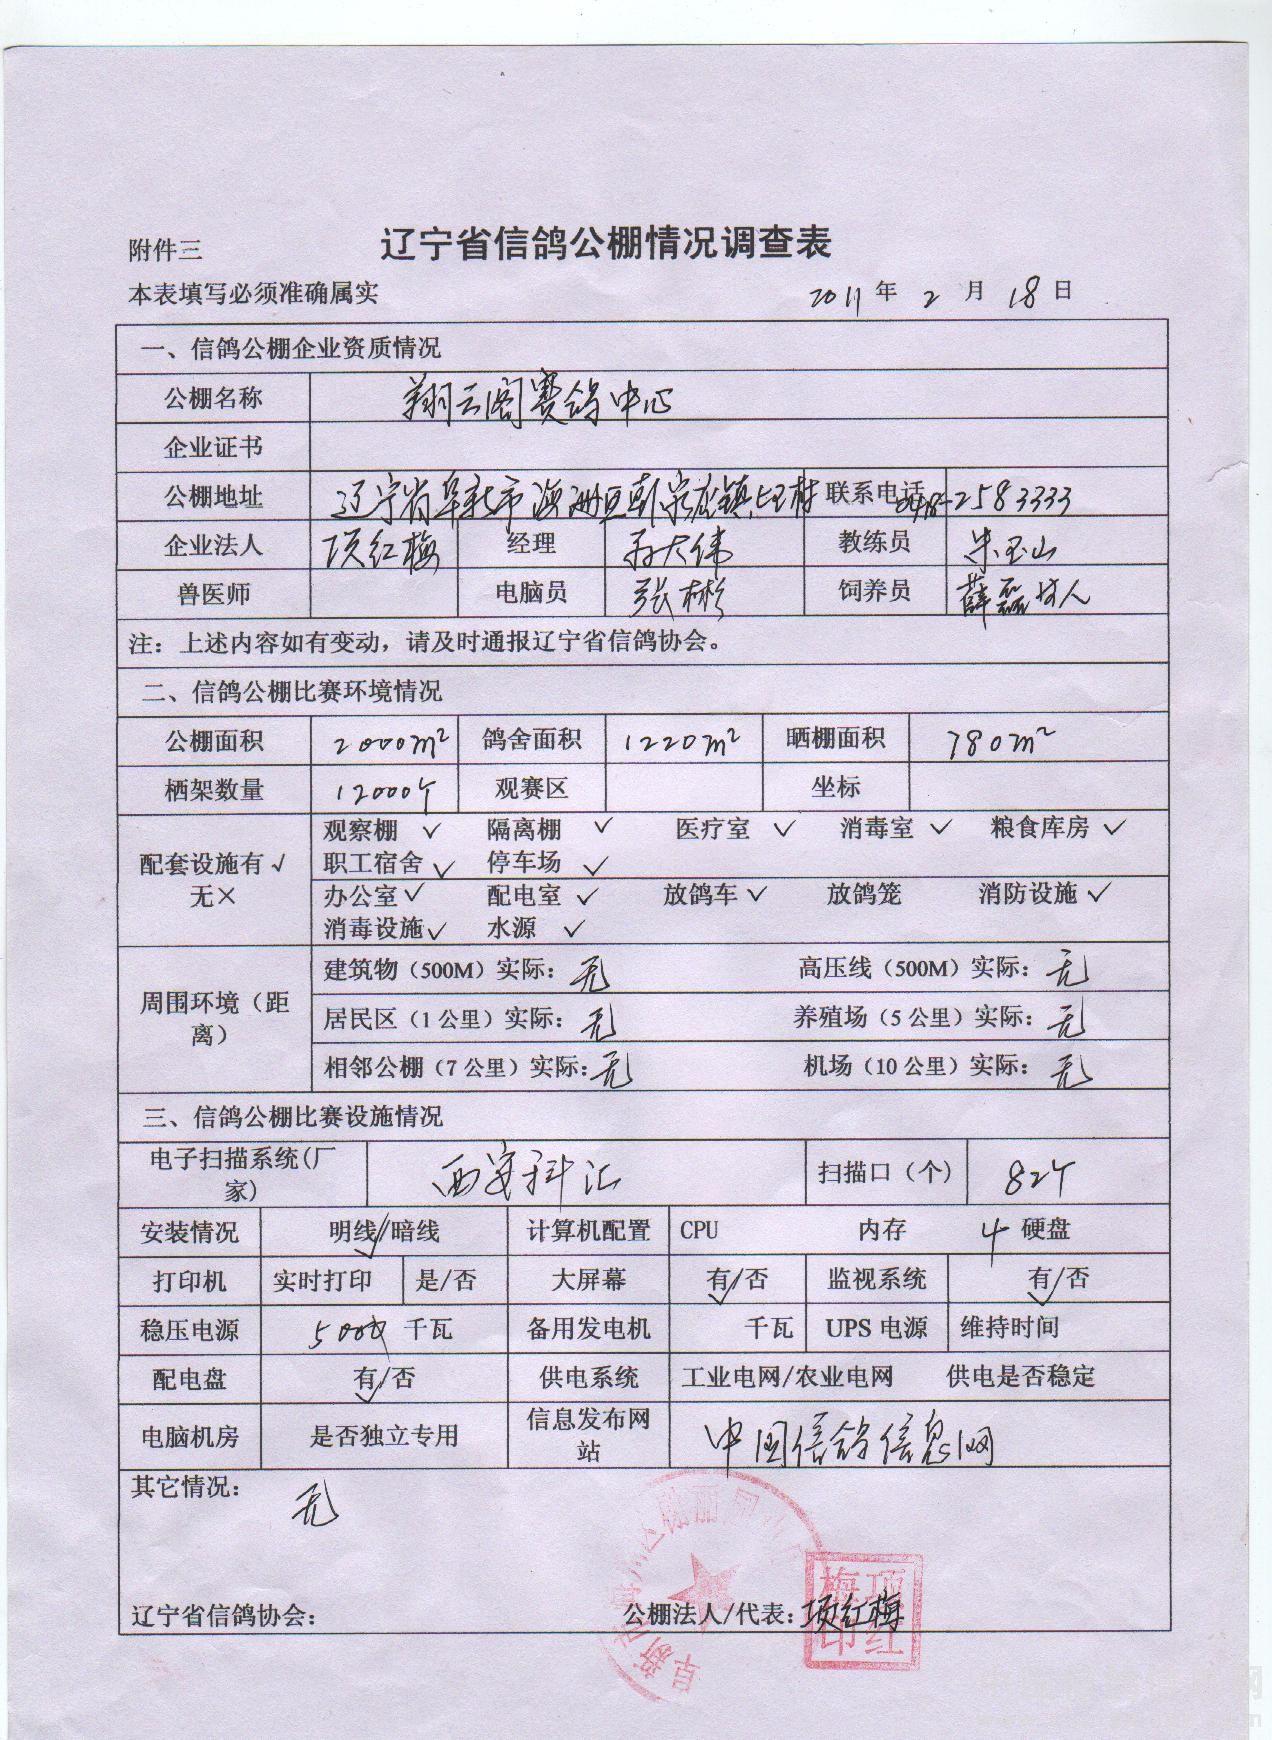 附件三
辽宁省信鸽公棚情况调查表
本表填写必须准确属实 2011年2月18日
一、信鸽公棚企业资质情况
公棚名称 翔云阁赛鸽中心
企业证书
公棚地址 辽宁省阜新市海州区韩家店镇 村 联系电话 0418-2583333
企业法人 项红梅 经理 孙大伟 教练员 朱玉山
兽医师 电脑员 张彬 饲养员 薛磊 人
注：上述内容如有变动，请及时通报辽宁省信鸽协会。
二、信鸽公棚比赛环境情况
公棚面积 2000m² 鸽舍面积 1220m² 晒棚面积 780m²
栖架数量 12000个 观赛区 坐标
配套设施有√
无×
观察棚 √ 隔离棚 √ 医疗室 √ 消毒室 √ 粮食库房 √
职工宿舍 √ 停车场 √
办公室√ 配电室 √ 放鸽车 √ 放鸽笼 消防设施 √
消毒设施√ 水源 √
周围环境（距
离）
建筑物（500M）实际：无 高压线（500M）实际：无
居民区（1公里）实际：无 养殖场（5公里）实际：无
相邻公棚（7公里）实际：无 机场（10公里）实际：无
三、信鸽公棚比赛设施情况
电子扫描系统(厂
家)
西安科汇 扫描口（个） 82个
安装情况 明线/暗线 √ 计算机配置 CPU 内存 4 硬盘
打印机 实时打印 是/否 大屏幕 有/否 √ 监视系统 有/否 √
稳压电源 5000 千瓦 备用发电机 千瓦 UPS 电源 维持时间
配电盘 有/否 √ 供电系统 工业电网/农业电网 供电是否稳定
电脑机房 是否独立专用 信息发布网
站
中国信鸽信息网
其它情况： 无
辽宁省信鸽协会： 公棚法人/代表：项红梅
项红梅印